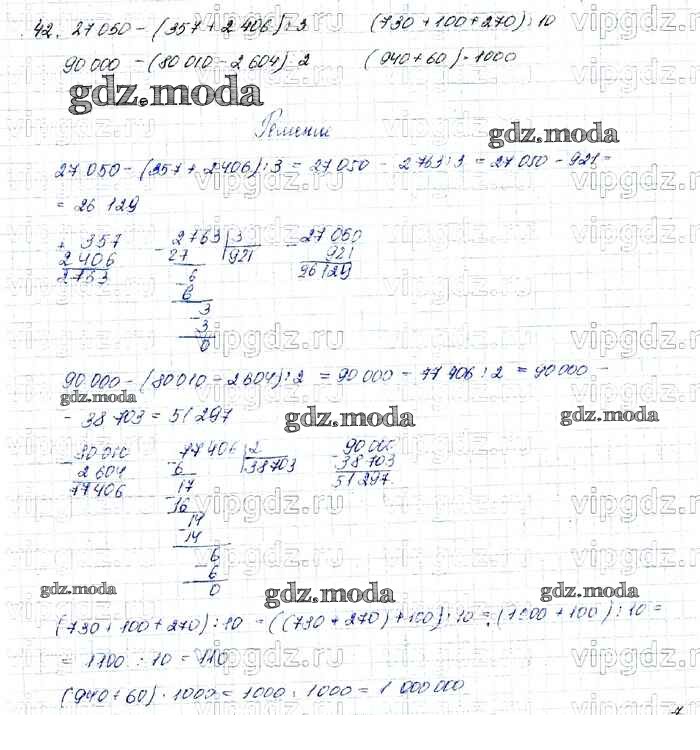 42. 27 050 - (357 + 2 406) : 3    (730 + 100 + 270) : 10
90 000 - (80 010 - 2 604) : 2    (940 + 60) · 1000
gdz.moda
Решение
gdz.moda
27 050 - (357 + 2 406) : 3 = 27 050 - 2 763 : 3 = 27 050 - 921 =
= 26 129
+ 357    - 2763 | 3    - 27 050
2 406    27    921    921
2763    - 6    26 129
6
- 3
3
0
90 000 - (80 010 - 2 604) : 2 = 90 000 - 77 406 : 2 = 90 000 -
gdz.moda
- 38 703 = 51 297
gdz.moda
gdz.moda
- 80 010    - 77 406 | 2    - 90 000
2 604    6    38 703    38 703
77 406    - 17    51 297
16
- 14
14
- 6
6
0
gdz.moda
gdz.moda
gdz.moda
(730 + 100 + 270) : 10 = ((730 + 270) + 100) : 10 = (1000 + 100) : 10 =
= 1100 : 10 = 110
(940 + 60) · 1000 = 1000 · 1000 = 1 000 000
vipgdz.ru